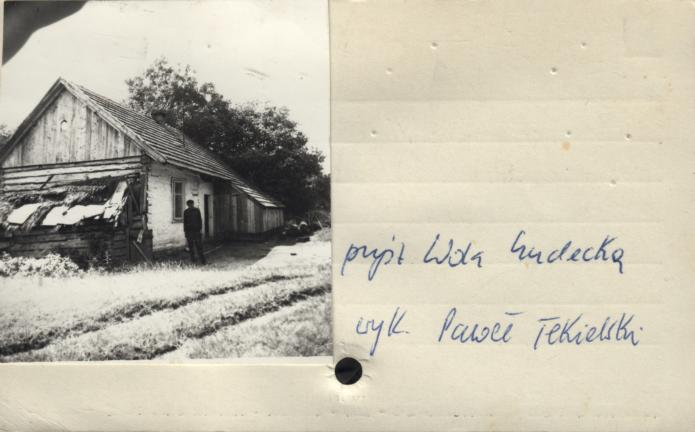 przys. Wola Gudecka
wyk. Paweł Tekielski